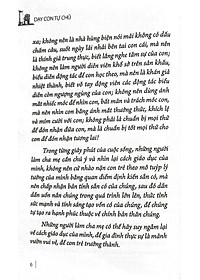 DẠY CON TỰ CHỦ
xa; không nên là nhà hùng biện nói mãi không có dấu
chấm câu, suốt ngày lải nhải bên tai con cái, mà nên là
thính giả trung thực, biết lắng nghe tâm sự của con; không
nên làm người diễn viên khổ sở trên sân khấu,
biểu diễn động tác để con học theo, mà nên là khán giả
nhiệt thành, biết vỗ tay động viên các động tác biểu
diễn còn ngượng ngùng của con; không nên dùng ánh
mắt nhiếc móc để nhìn con, bắt mãn và trách móc con,
mà nên nhìn con bằng ánh mắt thưởng thức, khích lệ
và mỉm cười với con; không phải là chuẩn bị mọi thứ
để đón nhận đứa con, mà là chuẩn bị mọi thứ cho
con để đón nhận tương lai!
Trong từng giây phút của cuộc sống, những người
làm cha mẹ cần chú ý và nhìn lại cách giáo dục của
mình, không nên cứ nhào nặn con trẻ theo mô tuýp lý
tưởng của mình bằng quan điểm định kiến sẵn có, mà
nên chấp nhận bản tính sẵn có của chúng, sau đó dẫn
dắt uốn nắn chúng trong quá trình lớn lên, thức tỉnh
sức mạnh và tính sáng tạo vốn có của chúng, để chúng
tự tạo ra hạnh phúc thuộc về chính bản thân chúng.
Những người làm cha mẹ có thể hãy suy ngẫm lại
về cách giáo dục của mình, để gia đình thực sự là mảnh
vườn vui vẻ, để con trẻ trưởng thành.
6